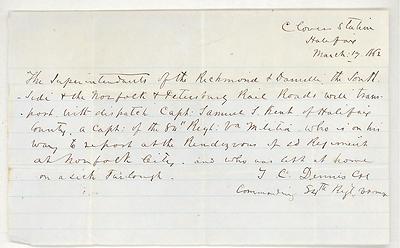 Clover Station
Halifax
March 17, 1862
The Superintendants of the Richmond & Danville the South-
-Side & the Norfolk & Petersburg Rail Roads will trans-
-port with dispatch Capt: Samuel S. Kent of Halifax
County, a Capt: of the 84th Regt: Va Militia who is on his
way to report at the Rendezvous of sd Regiment
at Norfolk City. and who was left at home
on a sick Furlough.
T C Dennis Col
Commanding 84th Regt